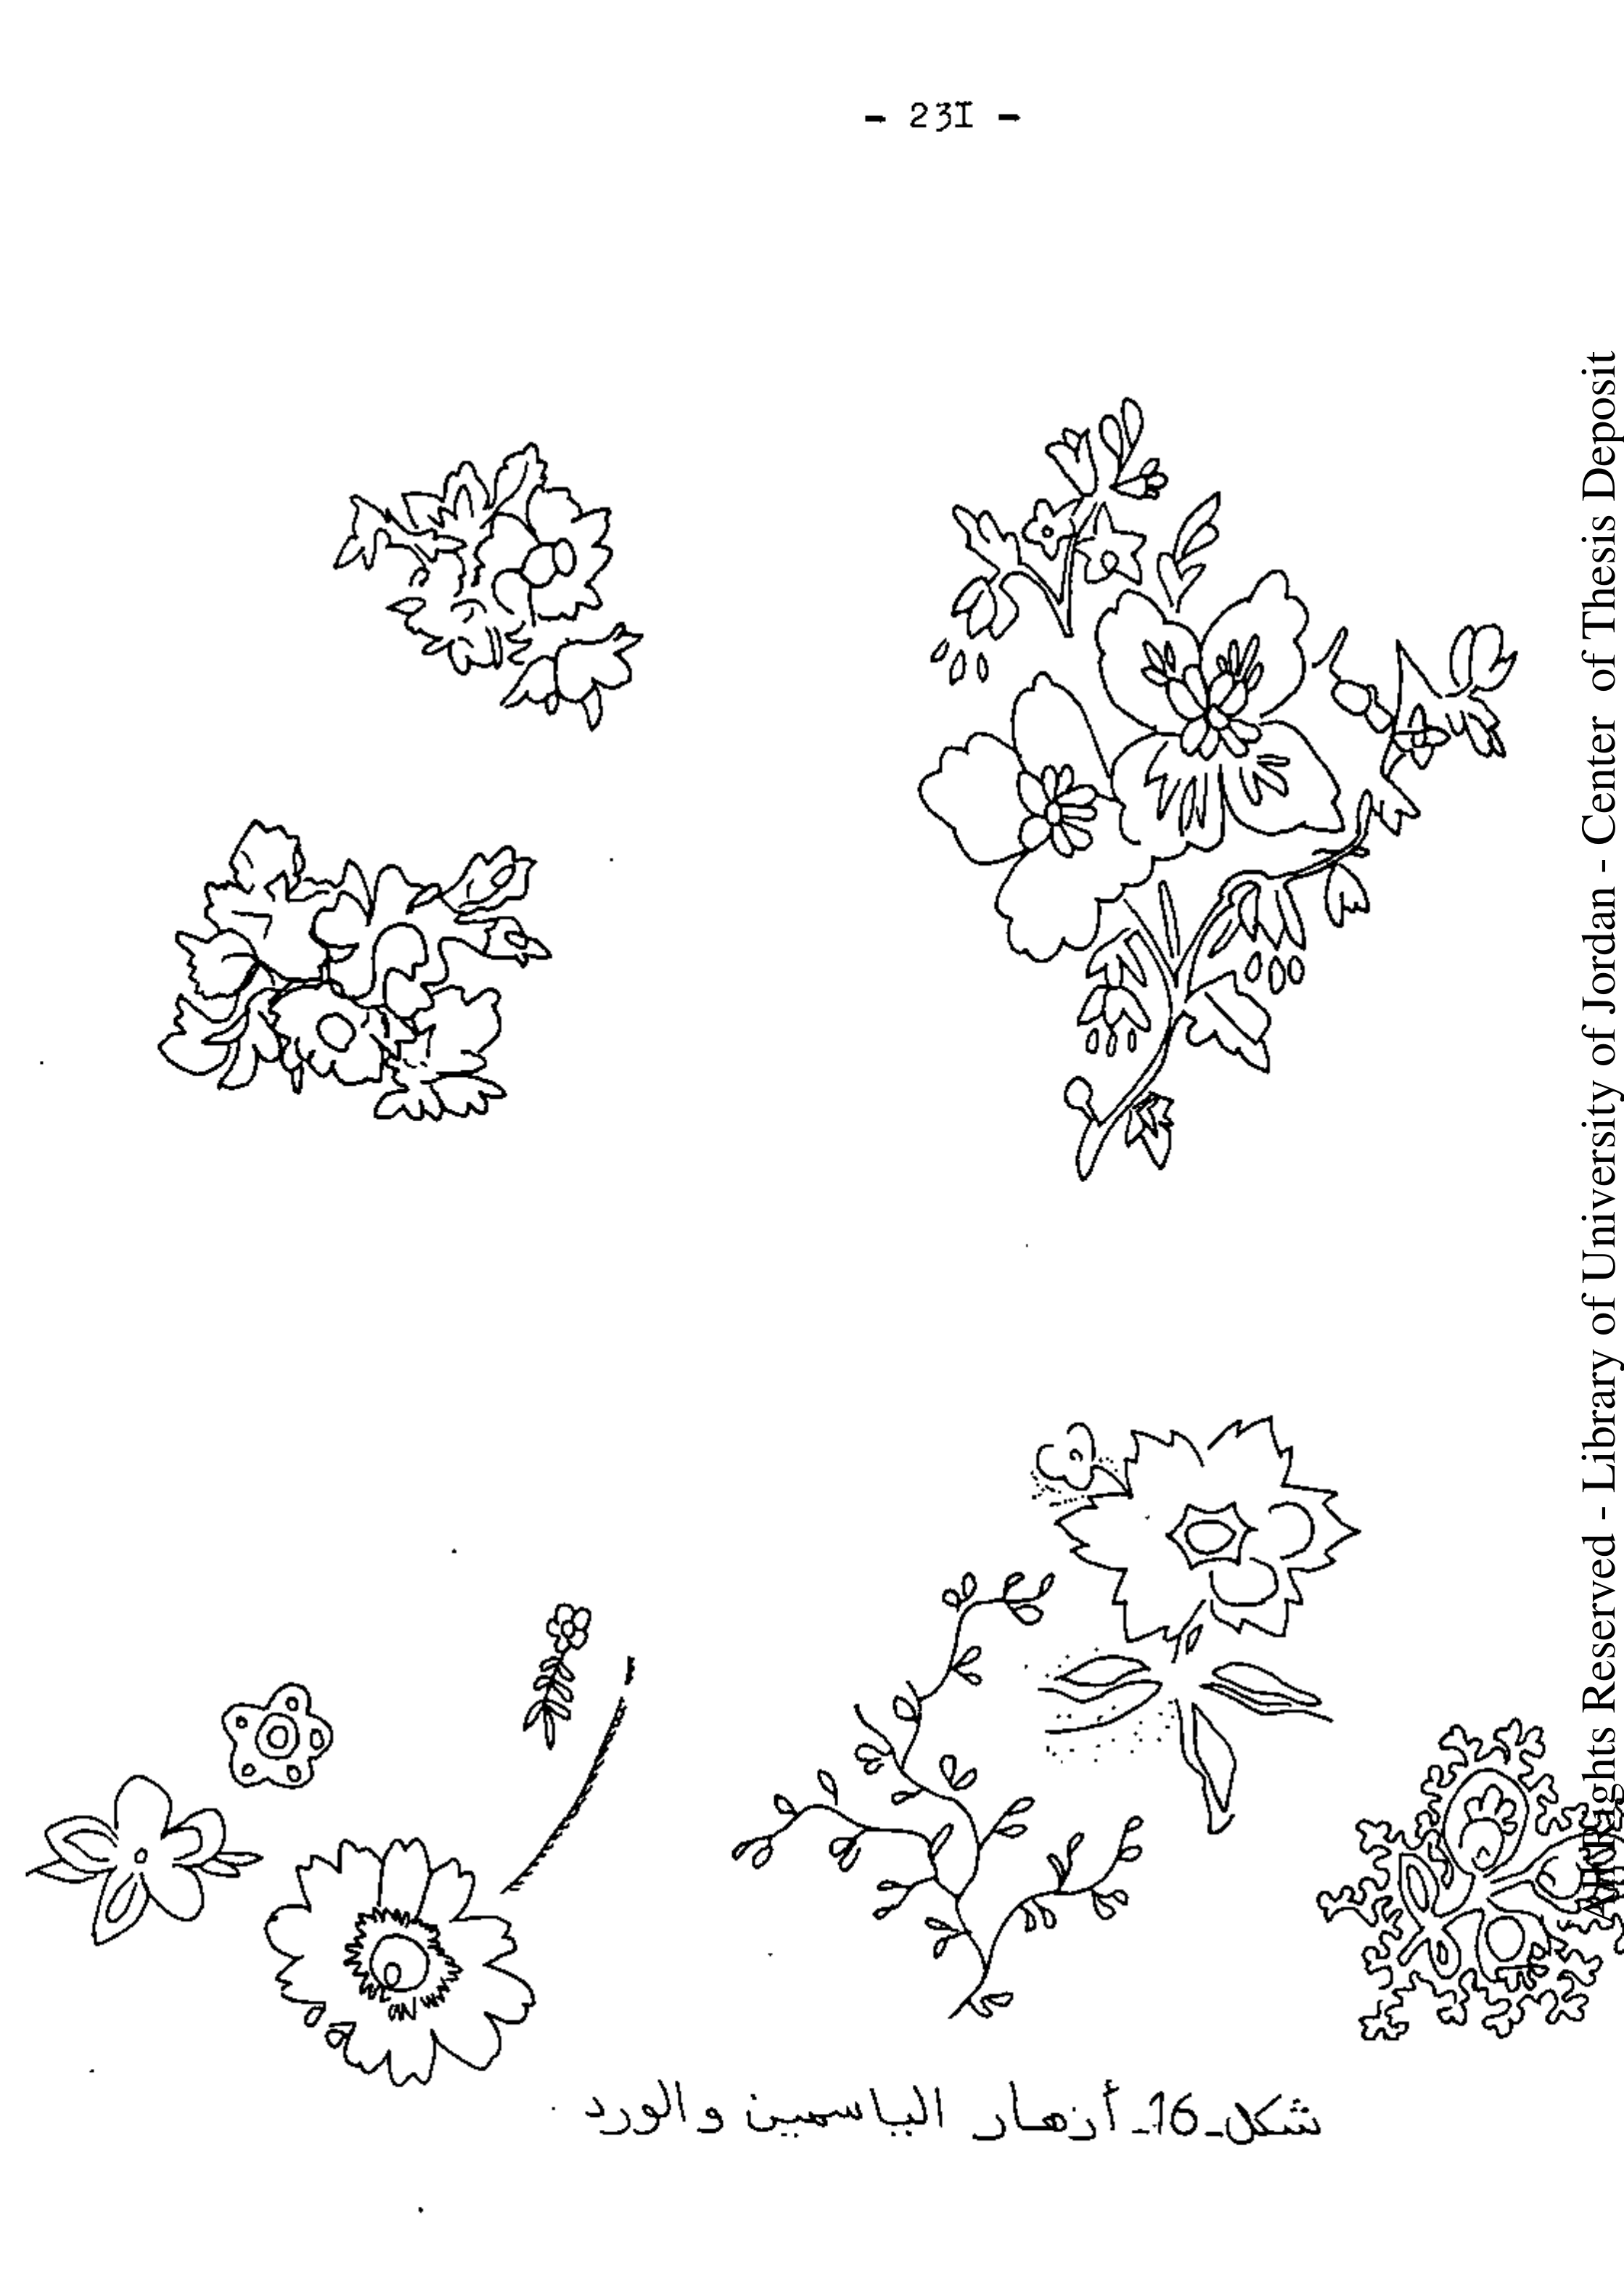 - 23I -
شكل_16_ أزهار الياسمين و الورد
All Rights Reserved - Library of University of Jordan - Center of Thesis Deposit